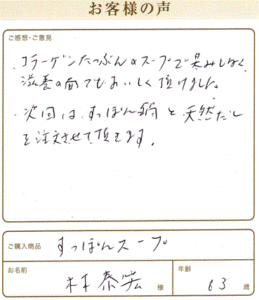 お客様の声
ご感想・ご意見
・コラーゲンたっぷりのスープで臭みもなく
滋養の面でもおいしく頂けました。
・次回は、すっぽん鍋と天然だし
を注文させて頂きます。
ご購入商品
すっぽんスープ
お名前
様
年齢
63 歳